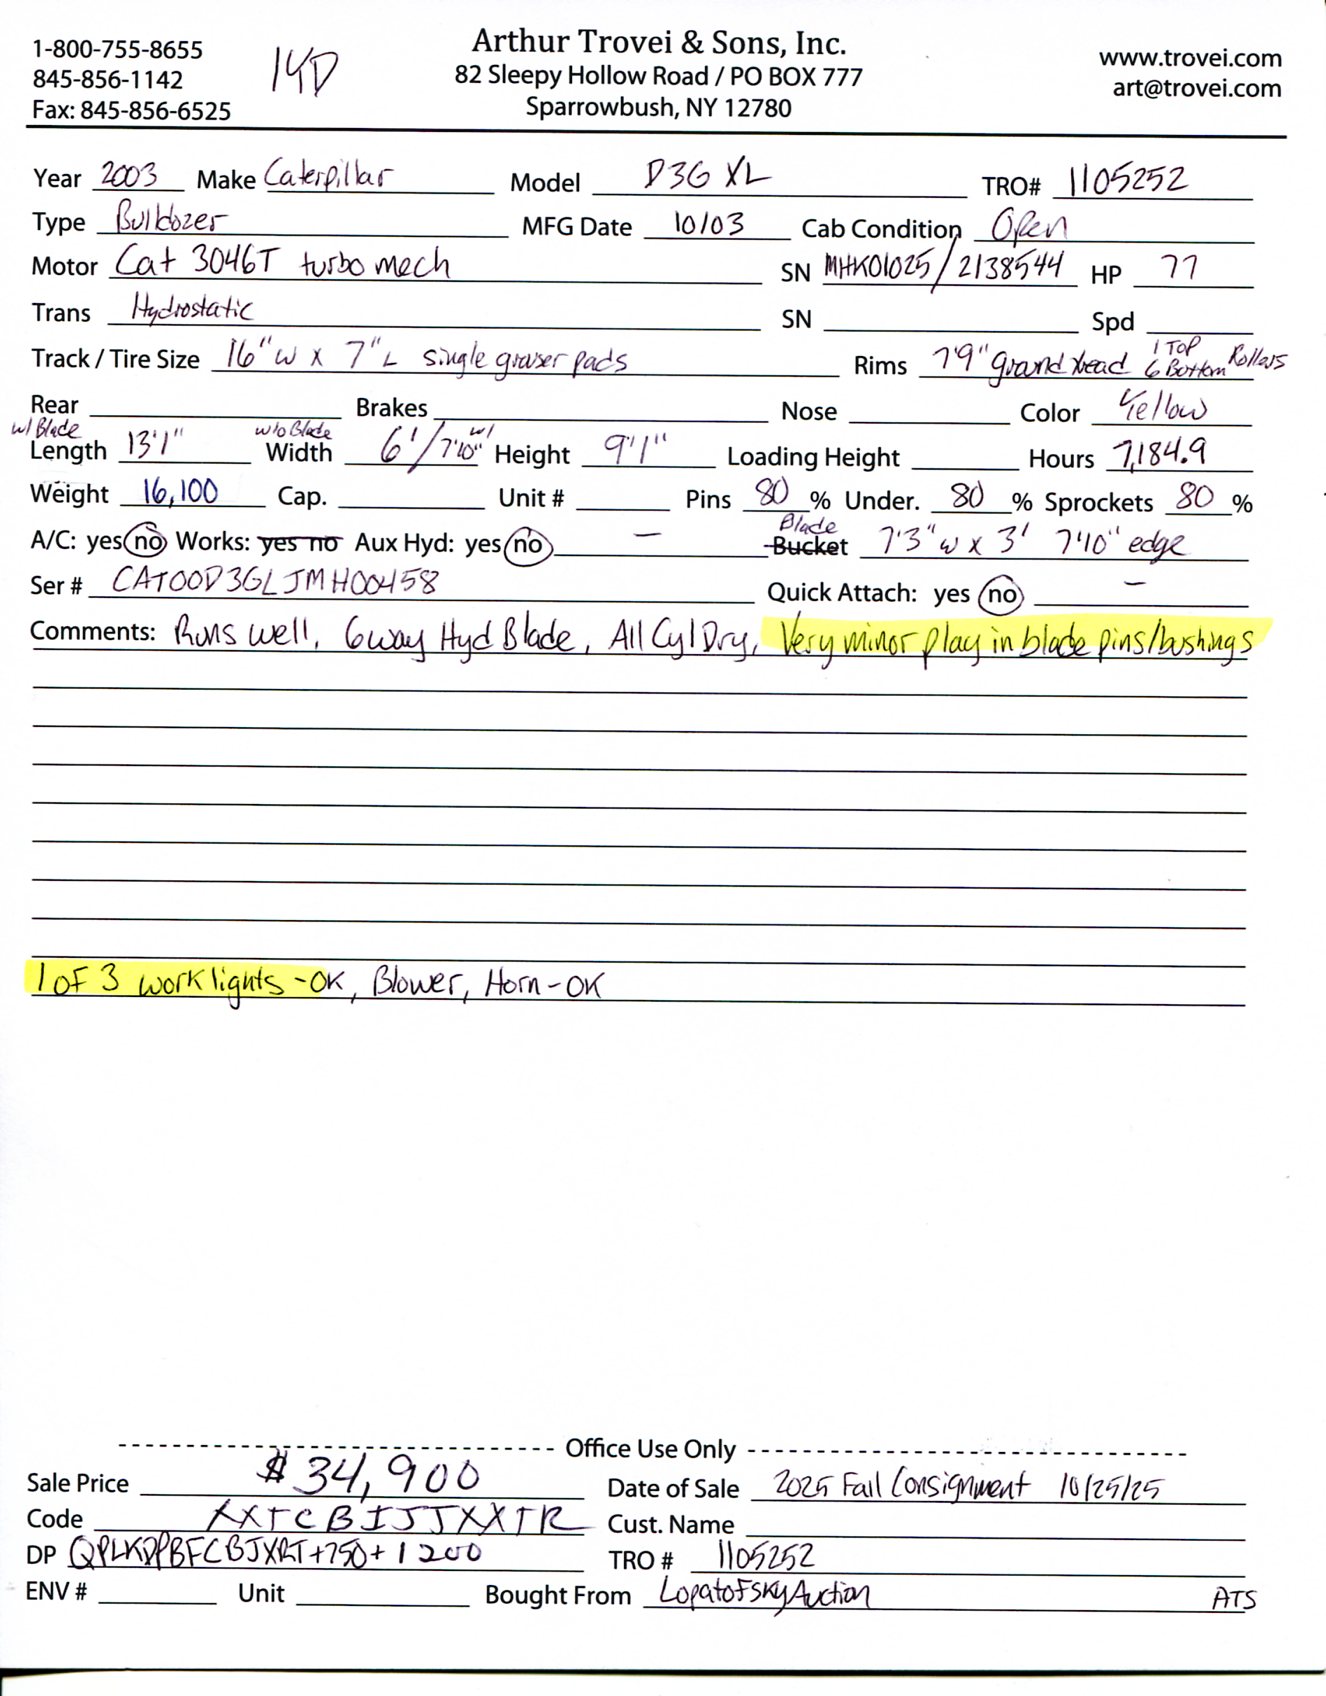 1-800-755-8655
845-856-1142
Fax: 845-856-6525
14D
Arthur Trovei & Sons, Inc.
82 Sleepy Hollow Road / PO BOX 777
Sparrowbush, NY 12780
www.trovei.com
art@trovei.com
Year 2003 Make Caterpillar Model D3G XL TRO# 1105252
Type Bulldozer MFG Date 10/03 Cab Condition Open
Motor Cat 3046T turbo mech SN MHK01025/2138544 HP 77
Trans Hydrostatic SN Spd
Track / Tire Size 16"W x 7"L single grouser pads Rims 7'9" ground tread 1 Top 6 Bottom Rollers
Rear Brakes Nose Color Yellow
w/ Blade Length 13'1" w/o Blade Width 6'/7'10" w/ Height 9'1" Loading Height Hours 7,184.9
Weight 16,100 Cap. Unit # Pins 80 % Under. 80 % Sprockets 80 %
A/C: yes no Works: yes no Aux Hyd: yes no — Blade Bucket 7'3"w x 3' 7'10" edge
Ser # CAT00D3GLJMH00458 Quick Attach: yes no —
Comments: Runs well, 6way Hyd Blade, All Cyl Dry, Very minor play in blade pins/bushings
1 of 3 work lights - OK, Blower, Horn - OK
Office Use Only
Sale Price $34,900 Date of Sale 2025 Fall Consignment 10/25/25
Code XXTCBIJJXXTR Cust. Name
DP QPLKDPBFCBJXRT+750+1200 TRO # 1105252
ENV # Unit Bought From Lopatofsky Auction ATS